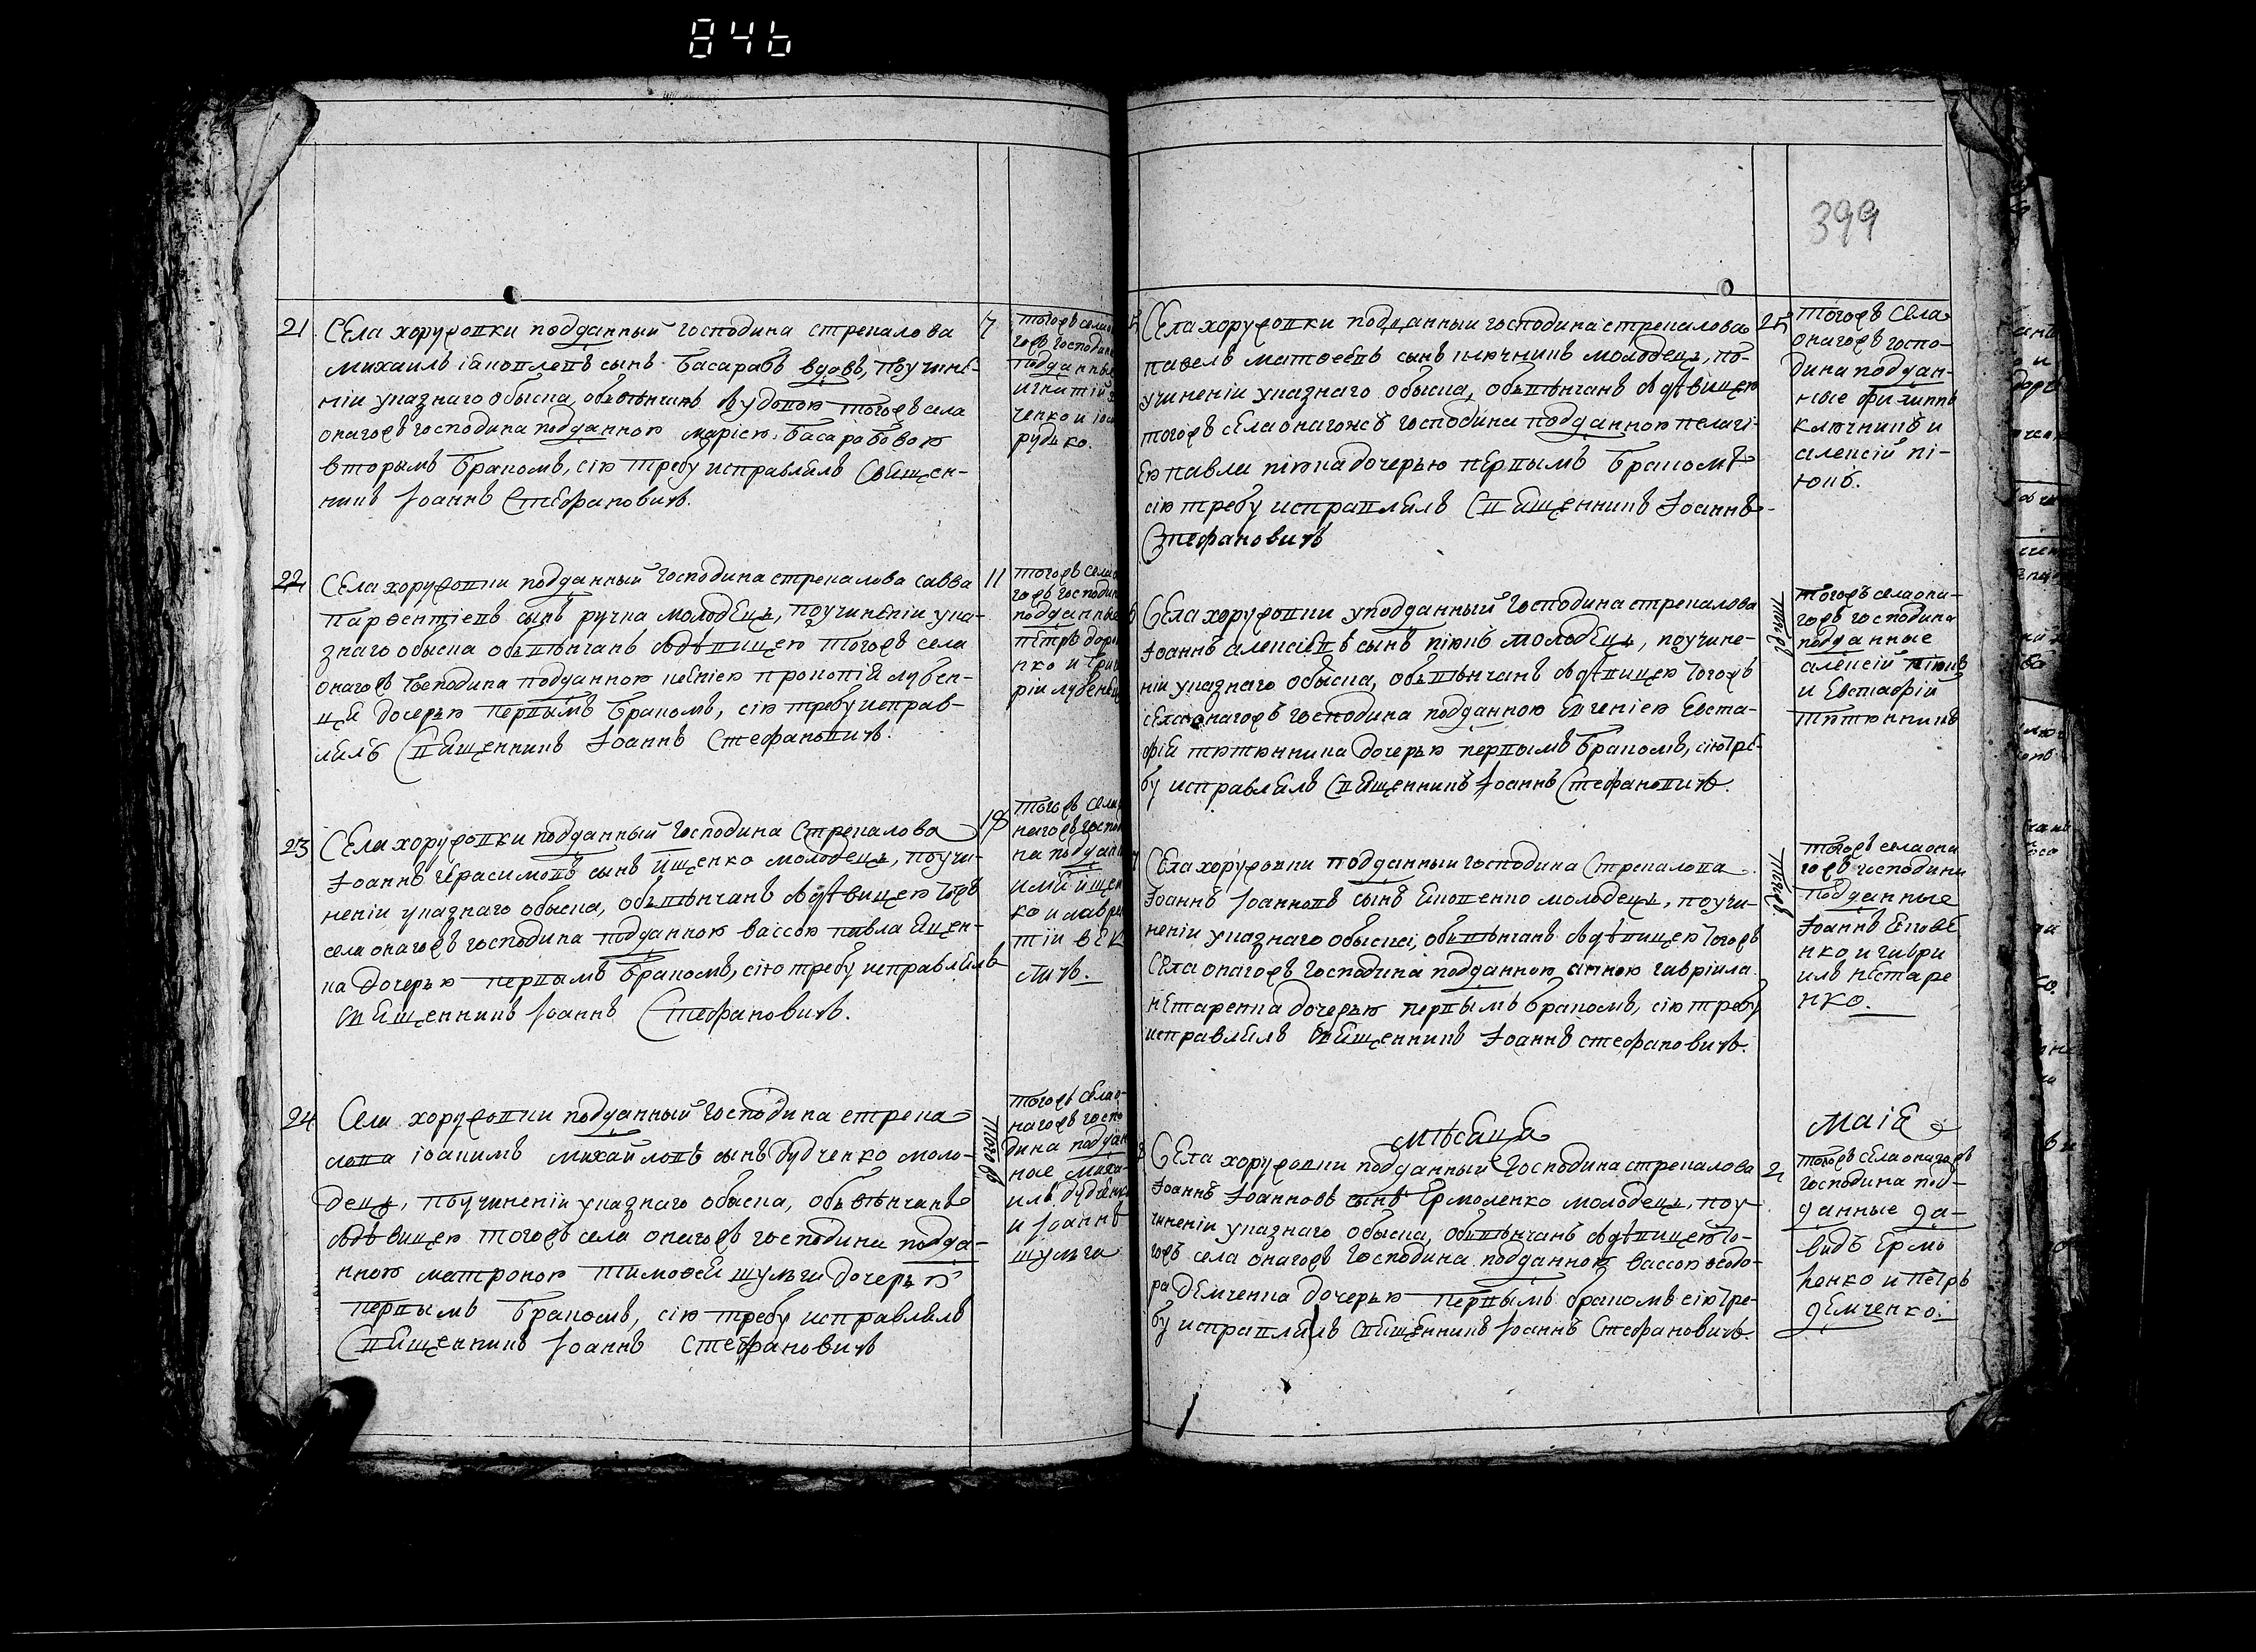 846
399
21
Села хоружовки подданный господина стрекалова
михаилъ іаковлевъ сынъ басарабъ вдовъ, поучине-
ніи указнаго обыска, обьвѣнчанъ зъ удовою тогожъ села
онагожъ господина подданною маріею басарабовою
вторымъ бракомъ, сію требу исправлялъ Священ-
никъ Іоаннъ Стефановичъ.
7
тогожъ села о
гожъ господина
подданные
игнатій
ченко и іоа
рудько.
22
Села хоружовки подданный господина стрекалова савва
парѳентіевъ сынъ ручка молодецъ, поучиненіи ука-
знаго обыска обьвѣнчанъ здѣвицею тогожъ села
онагожъ господина подданною ксеніею прокопія лубен-
ця дочерью первымъ бракомъ, сію требу исправ-
лялъ Священникъ Іоаннъ Стефановичъ.
11
тогожъ села о
гожъ господин
подданные
петръ доро
нко и григо
рій лубенец
23
Села хоружовки подданный господина Стрекалова
Іоаннъ герасимовъ сынъ йщенко молодецъ, поучи-
неніи указнаго обыска, обьвѣнчанъ здѣвицею тогожъ
села онагожъ господина подданною вассою павла ящен-
ка дочерью первымъ бракомъ, сію требу исправлялъ
Священникъ Іоаннъ Стефановичъ.
18
тогожъ села о
нагожъ госпо
на подданн
йщен
ко и лаврен
тій
личъ.
24
Села хоружовки подданный господина стрека
лова іоакимъ михайловъ сынъ дудченко моло-
децъ, поучиненіи указнаго обыска, обьвѣнчанъ
здѣвицею тогожъ села онагожъ господина подда-
нною матроною тимоѳея шульги дочерью
первымъ бракомъ, сію требу исправлялъ
Священникъ Іоаннъ Стефановичъ
тогожъ
тогожъ села о-
нагожъ госпо
дина поддан
ные миха-
илъ дудченко
и Іоаннъ
шульга
5
Села хоружовки подданныи господина стрекалова
павелъ матѳеевъ сынъ ключникъ молодецъ, по-
учиненіи указнаго обыска, обьвѣнчанъ здѣвицею
тогожъ села онагожъ господина подданною пелагі-
ею павла пікжа дочерью первымъ бракомъ
сію требу исправлялъ Священникъ Іоаннъ
Стефановичъ
25
тогожъ Села
онагожъ госпо-
дина поддан-
ные филиппъ
ключникъ и
алексій пі-
6
Села хоружовки уподданный господина стрекалова
Іоаннъ алексіевъ сынъ молодецъ, поучине-
ніи указнаго обыска, обьвѣнчанъ здѣвицею тогожъ
села онагожъ господина подданною евгеніею евста-
фія тютюнника дочерью первымъ бракомъ, сію тре-
бу исправлялъ Священникъ Іоаннъ Стефановичъ.
тогожъ
тогожъ села она-
гожъ господина
подданные
алексій
и Евстафій
тютюнникъ
7
Села хоружовки подданныи господина Стрекалова
Іоаннъ Іоанновъ сынъ Яковенко молодецъ, поучи-
неніи указнаго обыска, обьвѣнчанъ здѣвицею тогожъ
Села онагожъ господина подданною анною гавріила
нестаренка дочерью первымъ бракомъ, сію требу
исправлялъ Священникъ Іоаннъ стефановичъ.
тогожъ
тогожъ села она
гожъ господина
подданные
Іоаннъ Якове
нко и гаври
илъ нестаре
нко.
мѣсяца маія
8
Села хоружовки подданный господина стрекалова
Іоаннъ Іоанновъ сынъ Ермоленко молодецъ, поу-
чиненіи указнаго обыска, обьвѣнчанъ здѣвицею то-
гожъ села онагожъ господина подданною вассою ѳеодо-
ра демченка дочерью первымъ бракомъ сію тре-
бу исправлялъ Священникъ Іоаннъ Стефановичъ.
2
тогожъ села онагожъ
господина под-
данные да-
видъ Ермо
ленко и петръ
демченко.